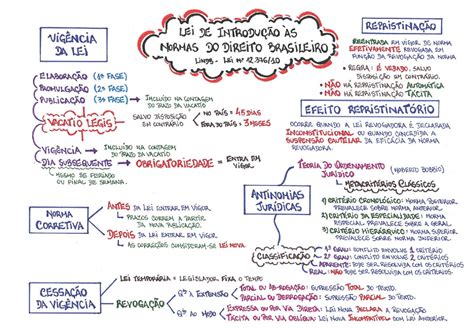 LEI DE INTRODUÇÃO ÀS
NORMAS DO DIREITO BRASILEIRO
LINDB - LEI Nº 12.376/10
VIGÊNCIA
DA LEI
ELABORAÇÃO (1ª FASE)
PROMULGAÇÃO (2ª FASE)
PUBLICAÇÃO (3ª FASE) → INCLUÍDO NA CONTAGEM
DO PRAZO DA VACATIO
VACATIO LEGIS → SALVO DISPOSIÇÃO
EM CONTRÁRIO
NO PAÍS = 45 DIAS
FORA DO PAÍS = 3 MESES
VIGÊNCIA → INCLUÍDO NA CONTAGEM
DO PRAZO DA VACATIO
DIA SUBSEQUENTE → OBRIGATORIEDADE = ENTRA EM
VIGOR
MESMO DE FERIADO
OU FINAL DE SEMANA.
REPRISTINAÇÃO
REENTRADA EM VIGOR DE NORMA
EFETIVAMENTE REVOGADA EM
FUNÇÃO DA REVOGAÇÃO DA NORMA
REGRA: É VEDADO, SALVO
DISPOSIÇÃO EM CONTRÁRIO.
NÃO HÁ REPRISTINAÇÃO AUTOMÁTICA
NÃO HÁ REPRISTINAÇÃO TÁCITA
EFEITO REPRISTINATÓRIO
OCORRE QUANDO A LEI REVOGADORA É DECLARADA
INCONSTITUCIONAL OU QUANDO CONCEDIDA A
SUSPENSÃO CAUTELAR DA EFICÁCIA DA NORMA
NORMA
CORRETIVA
ANTES DA LEI ENTRAR EM VIGOR
PRAZOS CORREM A PARTIR
DA NOVA PUBLICAÇÃO.
DEPOIS DA LEI ENTRAR EM VIGOR
AS CORREÇÕES CONSIDERAM-SE LEI NOVA
ANTINOMIAS
JURÍDICAS
TEORIA DO ORDENAMENTO
JURÍDICO (NORBERTO BOBBIO)
METACRITÉRIOS CLÁSSICOS
1) CRITÉRIO CRONOLÓGICO: NORMA POSTERIOR
PREVALECE SOBRE NORMA ANTERIOR.
2) CRITÉRIO DA ESPECIALIDADE: NORMA
ESPECIAL PREVALECE SOBRE A GERAL.
3) CRITÉRIO HIERÁRQUICO: NORMA SUPERIOR
PREVALECE SOBRE NORMA INFERIOR.
CLASSIFICAÇÃO
1º GRAU: CONFLITO ENVOLVE 1 CRITÉRIO
2º GRAU: CONFLITO ENVOLVE 2 CRITÉRIOS
APARENTE: PODE SER RESOLVIDA COM OS CRITÉRIOS.
REAL: NÃO PODE SER RESOLVIDA COM OS CRITÉRIOS.
CESSAÇÃO
DA VIGÊNCIA
LEI TEMPORÁRIA = LEGISLADOR FIXA O TEMPO
REVOGAÇÃO
QTO À EXTENSÃO
TOTAL OU AB-ROGAÇÃO: SUPRESSÃO TOTAL.
PARCIAL OU DERROGAÇÃO: SUPRESSÃO PARCIAL DO TEXTO.
QTO AO MODO
EXPRESSA OU POR VIA DIRETA: LEI NOVA DECLARA A REVOGAÇÃO
TÁCITA OU POR VIA OBLÍQUA: LEI NOVA INCOMPATÍVEL COM LEI ANTERIOR